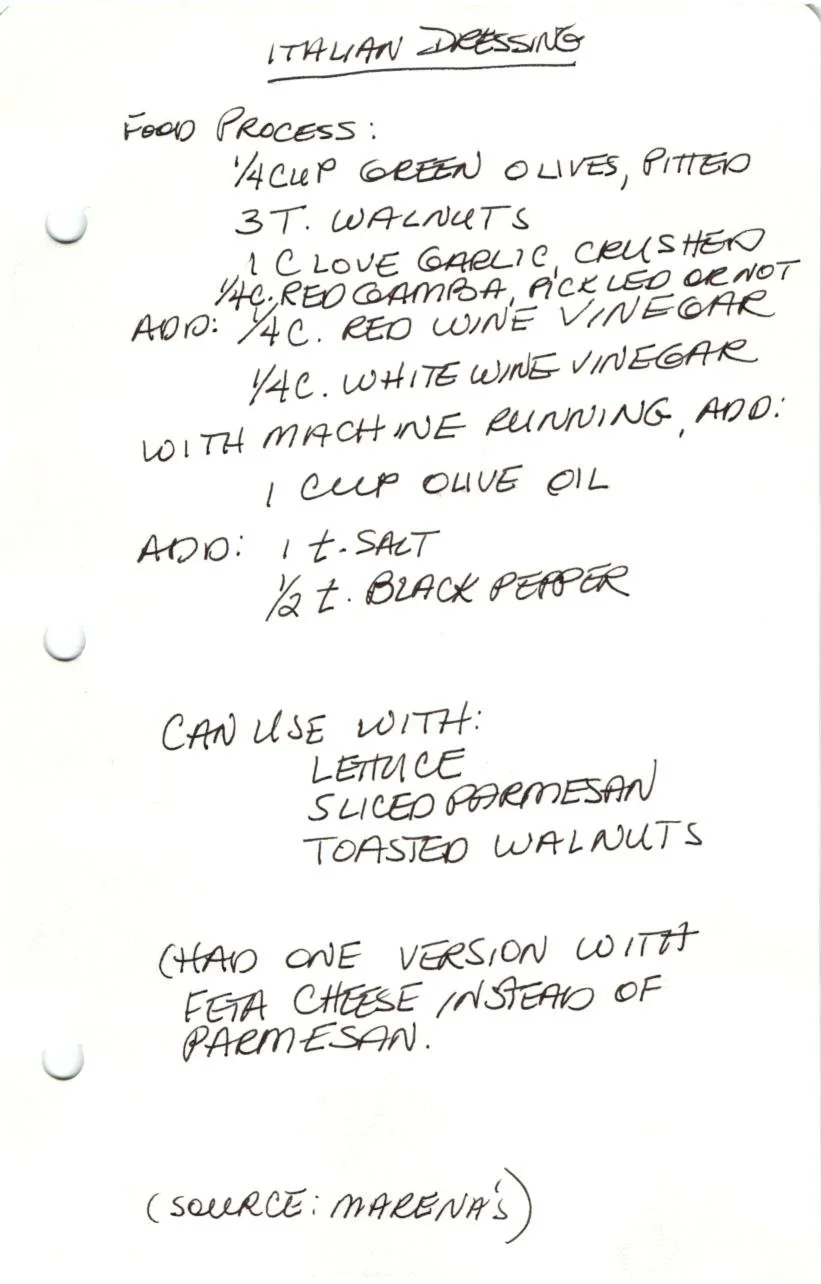 ITALIAN DRESSING
FOOD PROCESS:
1/4 CUP GREEN OLIVES, PITTED
3 T. WALNUTS
1 CLOVE GARLIC, CRUSHED
1/4 C. RED GAMBA, PICKLED OR NOT
ADD: 1/4 C. RED WINE VINEGAR
1/4 C. WHITE WINE VINEGAR
WITH MACHINE RUNNING, ADD:
1 CUP OLIVE OIL
ADD: 1 t. SALT
1/2 t. BLACK PEPPER
CAN USE WITH:
LETTUCE
SLICED PARMESAN
TOASTED WALNUTS
(HAD ONE VERSION WITH
FETA CHEESE INSTEAD OF
PARMESAN.
(SOURCE: MARENA'S)